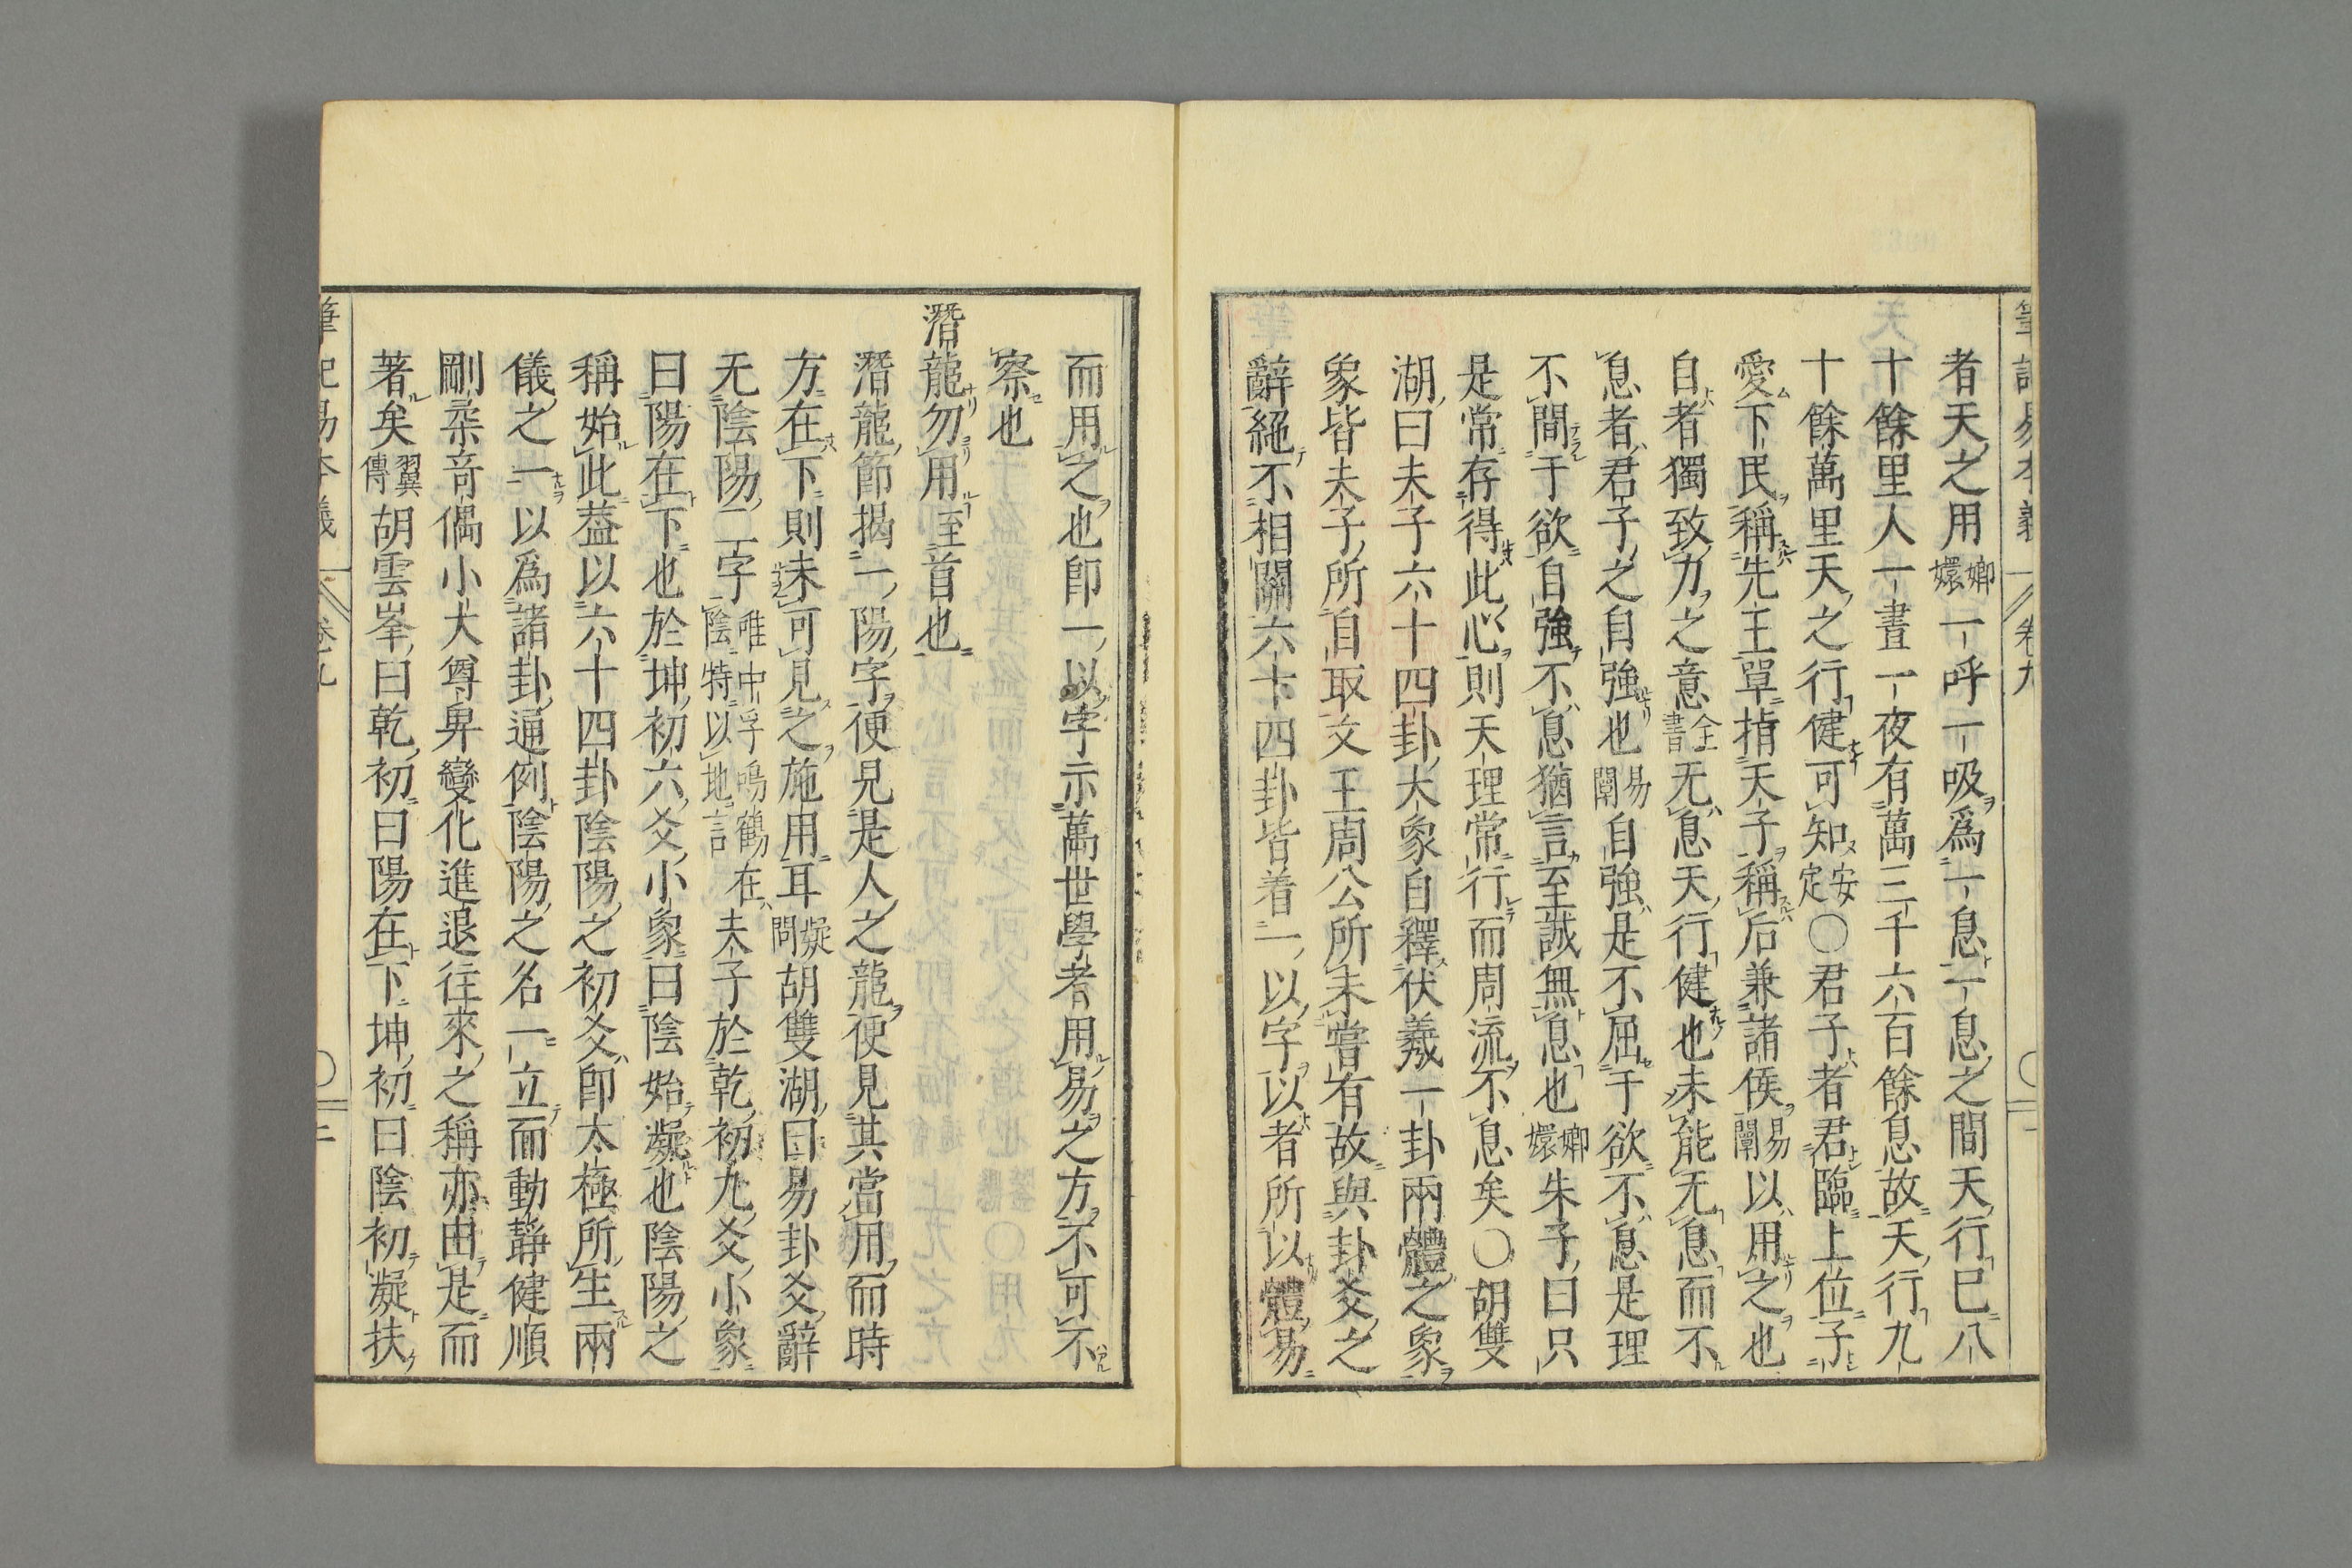 筆記易本義 卷九
者天之用嫏嬛一呼一吸爲一息一息之間天行已八
十餘里人一晝一夜有萬三千六百餘息故天行九
十餘萬里天之行健可知安定〇君子者君臨上位子
愛下民稱先王單指天子稱后兼諸侯易闡以用之也
自者獨致力之意全書无息天行健也未能无息而不
息者君子之自強也易闡自強是不屈于欲不息是理
不間于欲自強不息猶言至誠無息也嫏嬛朱子曰只
是常存得此心則天理常行而周流不息矣〇胡雙
湖曰夫子六十四卦大象自釋伏羲一卦兩體之象
象皆夫子所自取文王周公所未嘗有故與卦爻之
辭絕不相關六十四卦皆着一以字以者所以體易
而用之也卽一以字示萬世學者用易之方不可不
察也
潛龍勿用至首也
潛龍節揭一陽字便見是人之龍便見其當用而時
方在下則未可見之施用耳疑問胡雙湖曰易卦爻辭
无陰陽二字唯中孚鳴鶴在陰特以地言夫子於乾初九爻小象
曰陽在下也於坤初六爻小象曰陰始凝也陰陽之
稱始此葢以六十四卦陰陽之初爻卽太極所生兩
儀之一以爲諸卦通例陰陽之名一立而動靜健順
剛柔竒偶小大尊卑變化進退往來之稱亦由是而
著矣翼傳胡雲峯曰乾初曰陽在下坤初曰陰初凝扶
筆記易本義 卷九 二